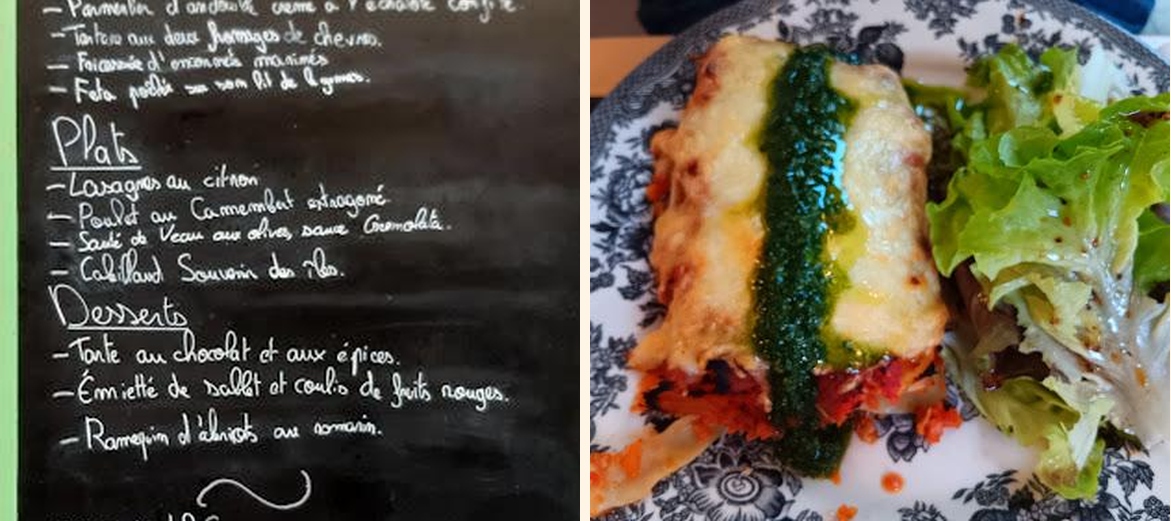 - Parmentier d'andouille crème à l'échalote confite.
- Tartare aux deux fromages de chèvres.
- Fricassée d'encornets marinés
- Feta poêlée sur son lit de légumes.
Plats
- Lasagnes au citron
- Poulet au Camembert estragoné
- Sauté de Veau aux olives, sauce Gremolata.
- Cabillaud Souvenir des îles.
Desserts
- Tarte au chocolat et aux épices.
- Émietté de sablé et coulis de fruits rouges.
- Ramequin d'abricots au romarin.